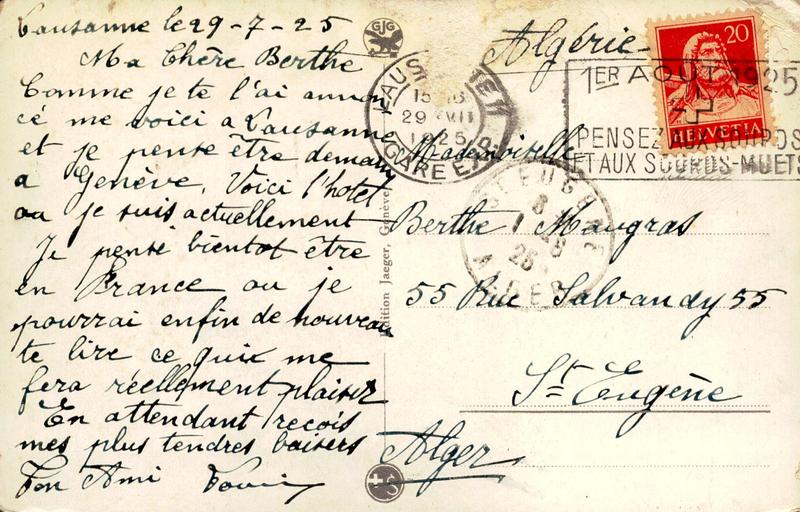 Lausanne le 29-7-25
Ma Chère Berthe
Comme je te l'ai annon
cé me voici a Lausanne
et je pense être demain
a Genève. Voici l'hotel
ou je suis actuellement
Je pense bientot être
en France ou je
pourrai enfin de nouveau
te lire ce qui me
fera réellement plaisir
En attendant reçois
mes plus tendres baisers
Ton Ami
GJG
Edition Jaeger, Genève
Algérie
Mademoiselle
Berthe Maugras
55 Rue Salvandy 55
St. Eugène
Alger
29 VII
1925
1ER AOUT 1925
PENSEZ AUX SOURDS
ET AUX SOURDS-MUETS
20
HELVETIA
ST EUGENE
ALGER